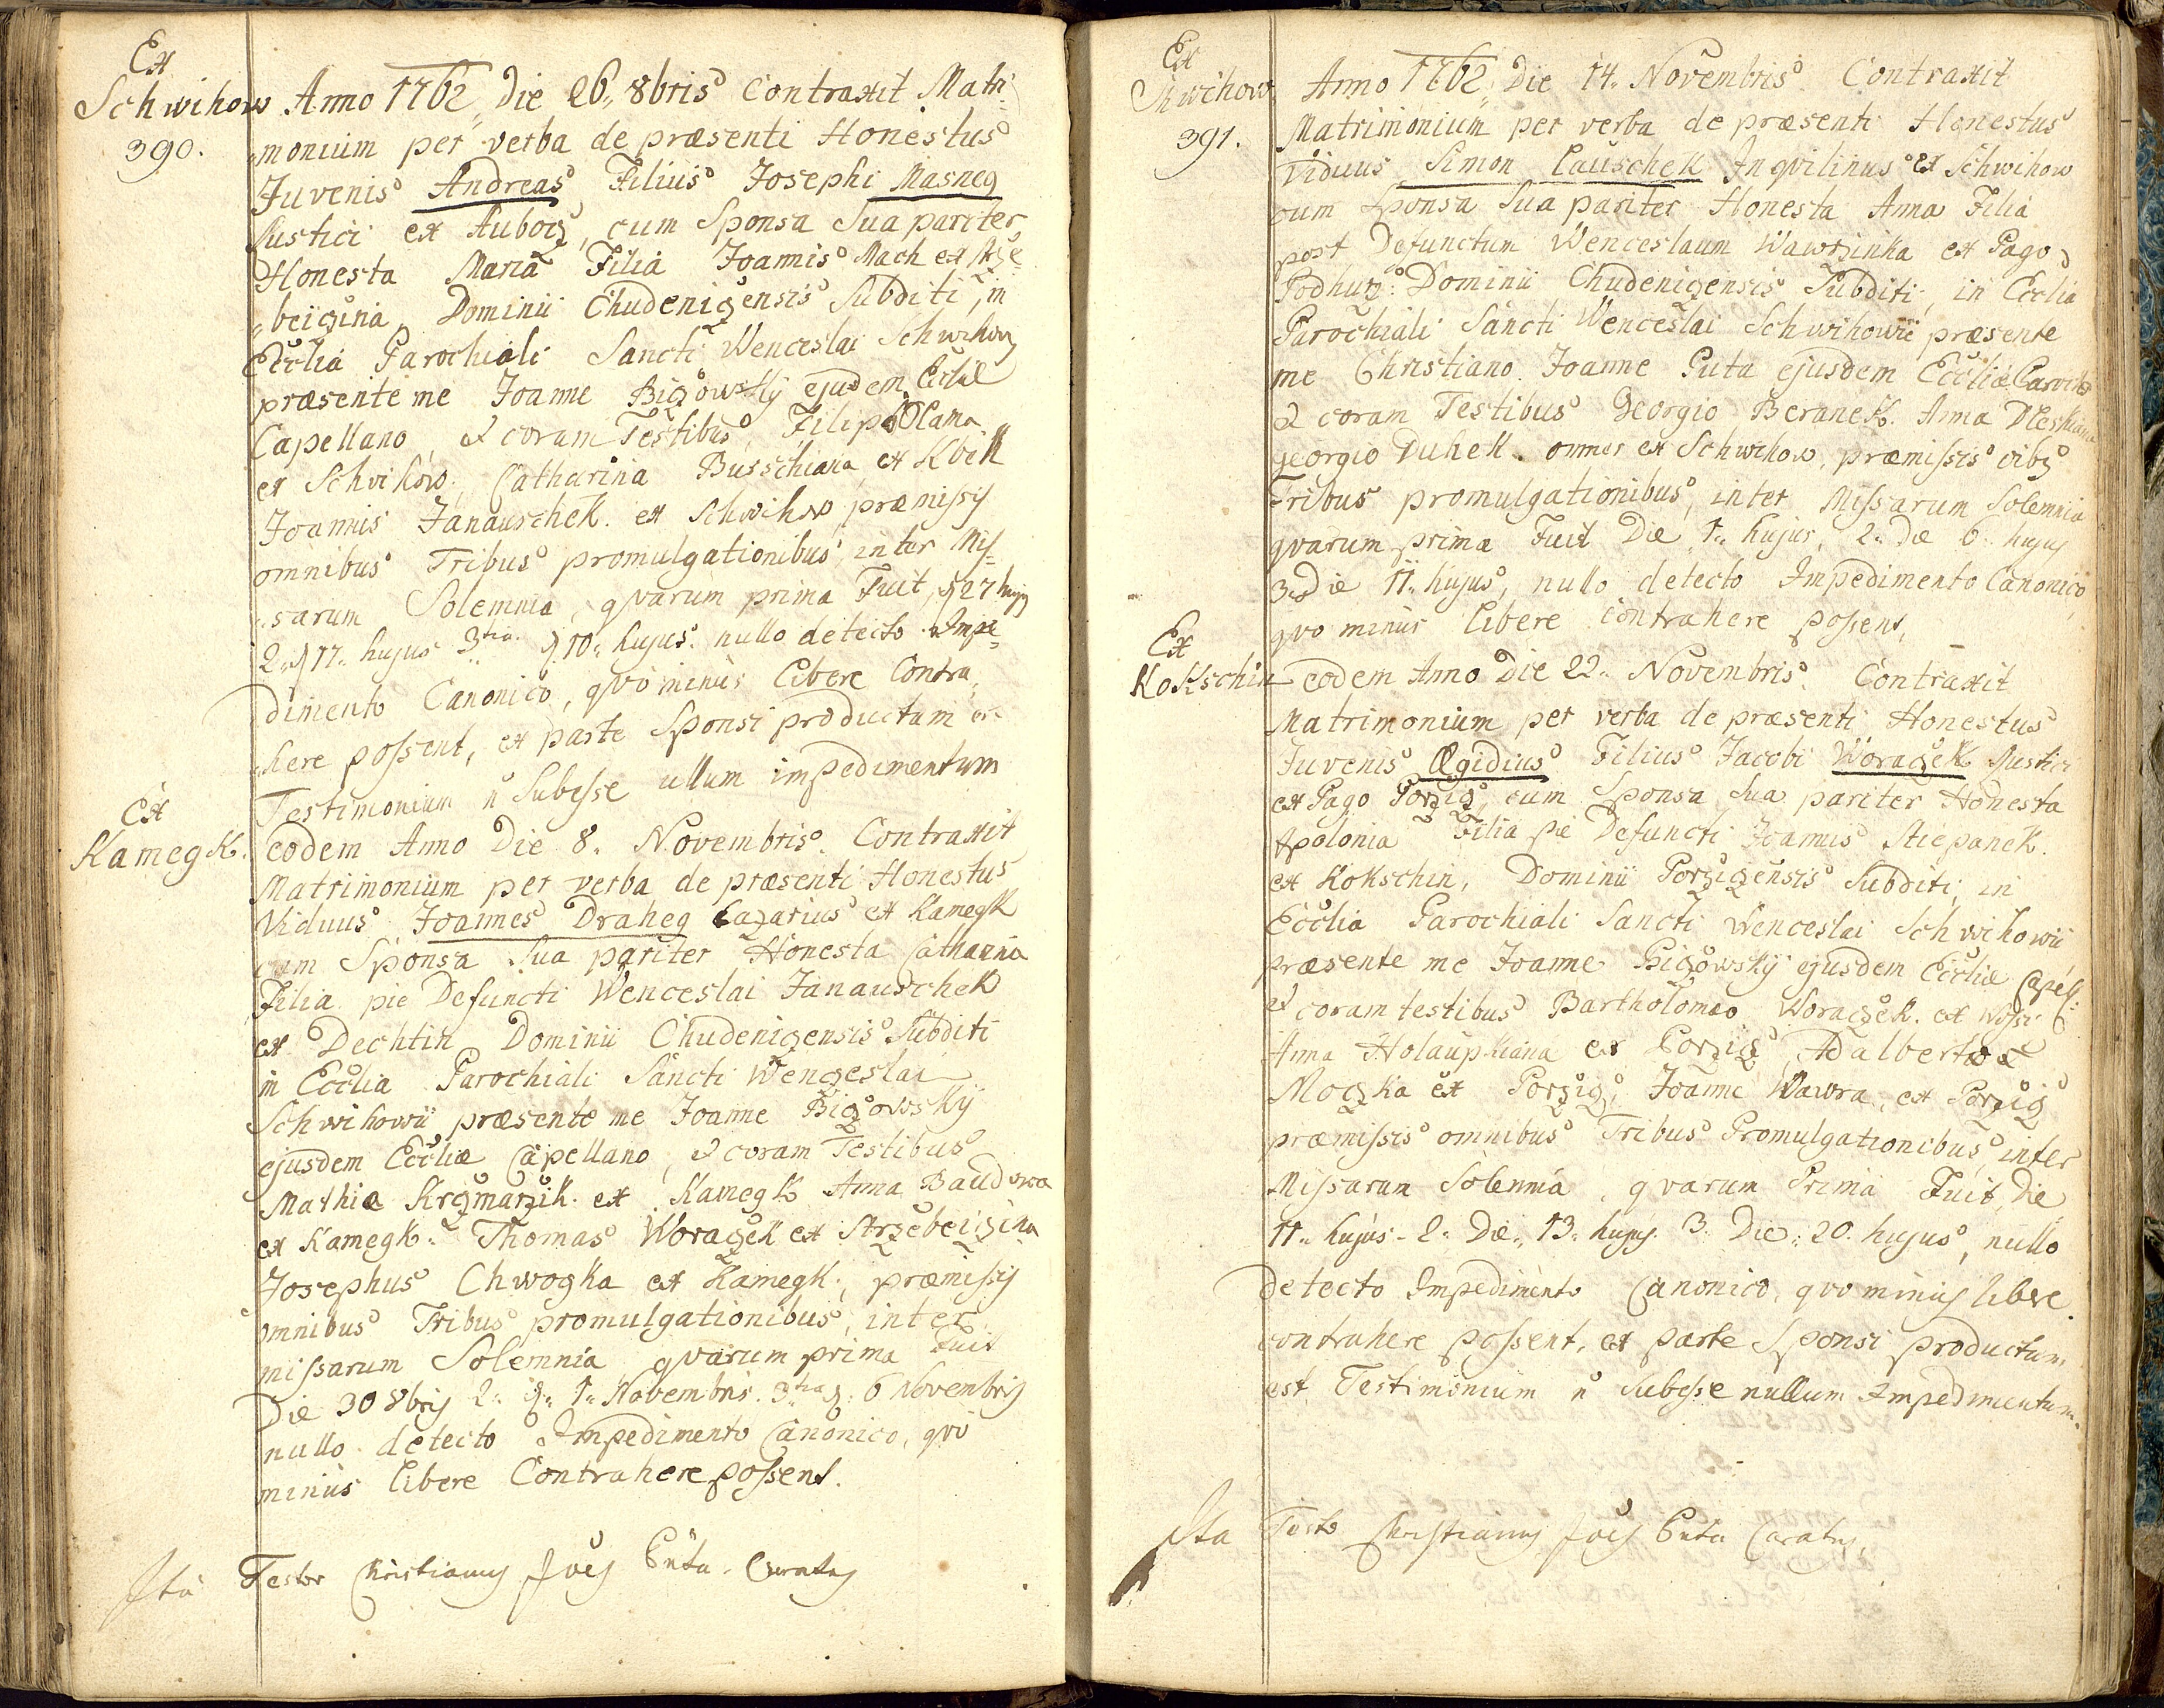 Ex
Schwihow
390.
Anno 1762 Die 26,, 8bris Contraxit Matri
monium per verba de præsenti Honestus
Juvenis Andreas Filius Josephi Masneg
Rustici ex Auborz, cum Sponsa Sua pariter
Honesta Maria Filia Joannis Mach ex Strže
beigina Dominii Chudenizensis Subditi, in
Ecclia Parochiali Sancti Wenceslai Schwihow
præsente me Joanne Bizowsky ejusdem Eccliæ
Capellano, & coram Testibus, Filip
ex Schwihow, Catharina Burschiana ex Kbek
Joannis Janauschek. ex Schwihow, præmissis
omnibus Tribus promulgationibus, inter Mis-
sarum Solemnia, qvarum prima Fuit, 27 hujus
2. 17,, hujus 3tia 10,, hujus. nullo detecto Impe-
dimento Canonico, qvo minus libere Contra,
here possent, ex parte Sponsi productum est
Testimonium n Subesse ullum impedimentum
Ex
Kamegk.
eodem Anno Die 8. Novembris. Contraxit
Matrimonium per verba de præsenti Honestus
Viduus Joannes Draheg Cazarius ex Kamegk
cum Sponsa Sua pariter Honesta Catharina
Filia pie Defuncti Wenceslai Janauschek
ex Dechtin Dominii Chudenizensis Subditi
in Ecclia Parochiali Sancti Wenzeslai
Schwihowii præsente me Joanne Bizowsky
ejusdem Eccliæ Capellano, & coram Testibus
Mathia Krzmarzik. ex Kamegk Anna Baudowa
ex Kamegk. Thomas Worazek ex Strzebeizina
Josephus Chwogka ex Kamegk, præmissis
omnibus Tribus promulgationibus, inter
missarum Solemnia qvarum prima Fuit
Die 30 8bris 2. 1. Novembris. 3tia 6 Novembris
nullo detecto Impedimento Canonico, qvo
minus libere Contrahere possent.
Ita Testor Christianus Joes Puta. Curatus
Ex
Schwihow
391.
Anno 1762,, Die 14. Novembris. Contraxit
Matrimonium per verba de præsenti Honestus
Viduus Simon Lauschek Inqvilinus ex Schwihow
cum Sponsa Sua pariter Honesta Anna Filia
post Defunctum Wenceslaum Wawrzinka ex Pago
Podhurz: Dominii Chudenizensis Subditi, in Ecclia
Parochiali Sancti Wenceslai Schwihowii præsente
me Christiano Joanne Puta ejusdem Eccliæ
& coram Testibus Georgio Beranek. Anna
Georgio Duhek. omnes ex Schwihow, præmissis oibus
Tribus promulgationibus, inter Missarum Solemnia
qvarum prima Fuit Die 1. hujus, 2. Die 6. hujus
3. Die 11. hujus, nullo detecto Impedimento Canonico
qvo minus libere contrahere possent,
Ex
Kokschin
eodem Anno Die 22. Novembris. Contraxit
Matrimonium per verba de præsenti Honestus
Juvenis Ægidius Filius Jacobi Worazek Rustici
ex Pago Porzicz, cum Sponsa sua pariter Honesta
Apolonia Filia pie Defuncti Joannis Stiepanek.
ex Kokschin, Dominii Porzizensis Subditi, in
Ecclia Parochiali Sancti Wenceslai Schwihowii
præsente me Joanne Bizowsky ejusdem Eccliæ Capell:
& coram testibus Bartholomæo Worazek. ex
Anna Holaupkiana ex Porziz, Adalbertus
Moczka ex Porziz, Joanne Wawra, ex Porziz
præmissis omnibus Tribus Promulgationibus, inter
Missarum Solemnia, qvarum Prima Fuit Die
11. hujus. 2. Die. 13. hujus. 3. Die. 20. hujus, nullo
detecto Impedimento Canonico, qvo minus libere
contrahere possent, ex parte Sponsi productum
est Testimonium n Subesse nullum Impedimentum.
Ita Testor Christianus Joes Puta Curatus,